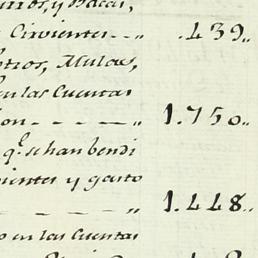 y Bacas,
Cirvientes - - „ .439..
Potros, Mulas,
en las Cuentas
- - - „ 1.750..
q.e se han bendi
y gasto
- - - - „ 1.448..
en las Cuentas